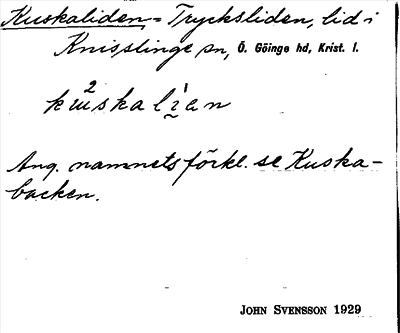 Kuskaliden = Trycksliden, lid i
Knisslinge sn, Ö. Göinge hd, Krist. l.
Ang. namnets förkl. se Kuska-
backen.
JOHN SVENSSON 1929